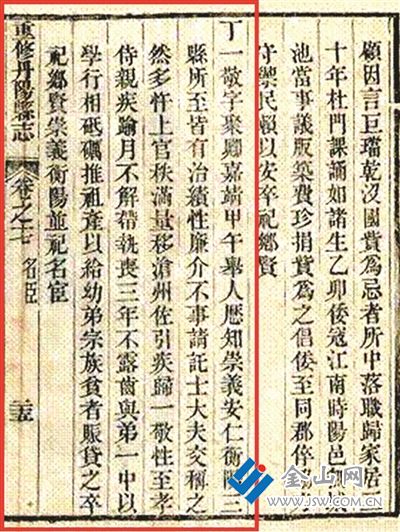 顧因言巨璫乾沒國貲為忌者所中落職歸家居
十年杜門課誦如諸生乙卯倭寇江南時陽邑
池當事議版築費珍捐貲為之倡倭至同郡
守禦民賴以安卒祀鄉賢
丁一敬字聚卿嘉靖甲午舉人歷知崇義安仁衡陽三
縣所至皆有治績性廉介不事請託士大夫交稱之
然多忤上官秩滿量移滄州佐引疾歸一敬性至孝
侍親疾踰月不解帶執喪三年不露齒與弟一中以
學行相砥礪推祖產以給幼弟宗族貧者賑貸之卒
祀鄉賢崇義衡陽並祀名宦
重修丹陽縣志
卷之十七 名臣
二十五
金山网
WWW.JSW.COM.CN